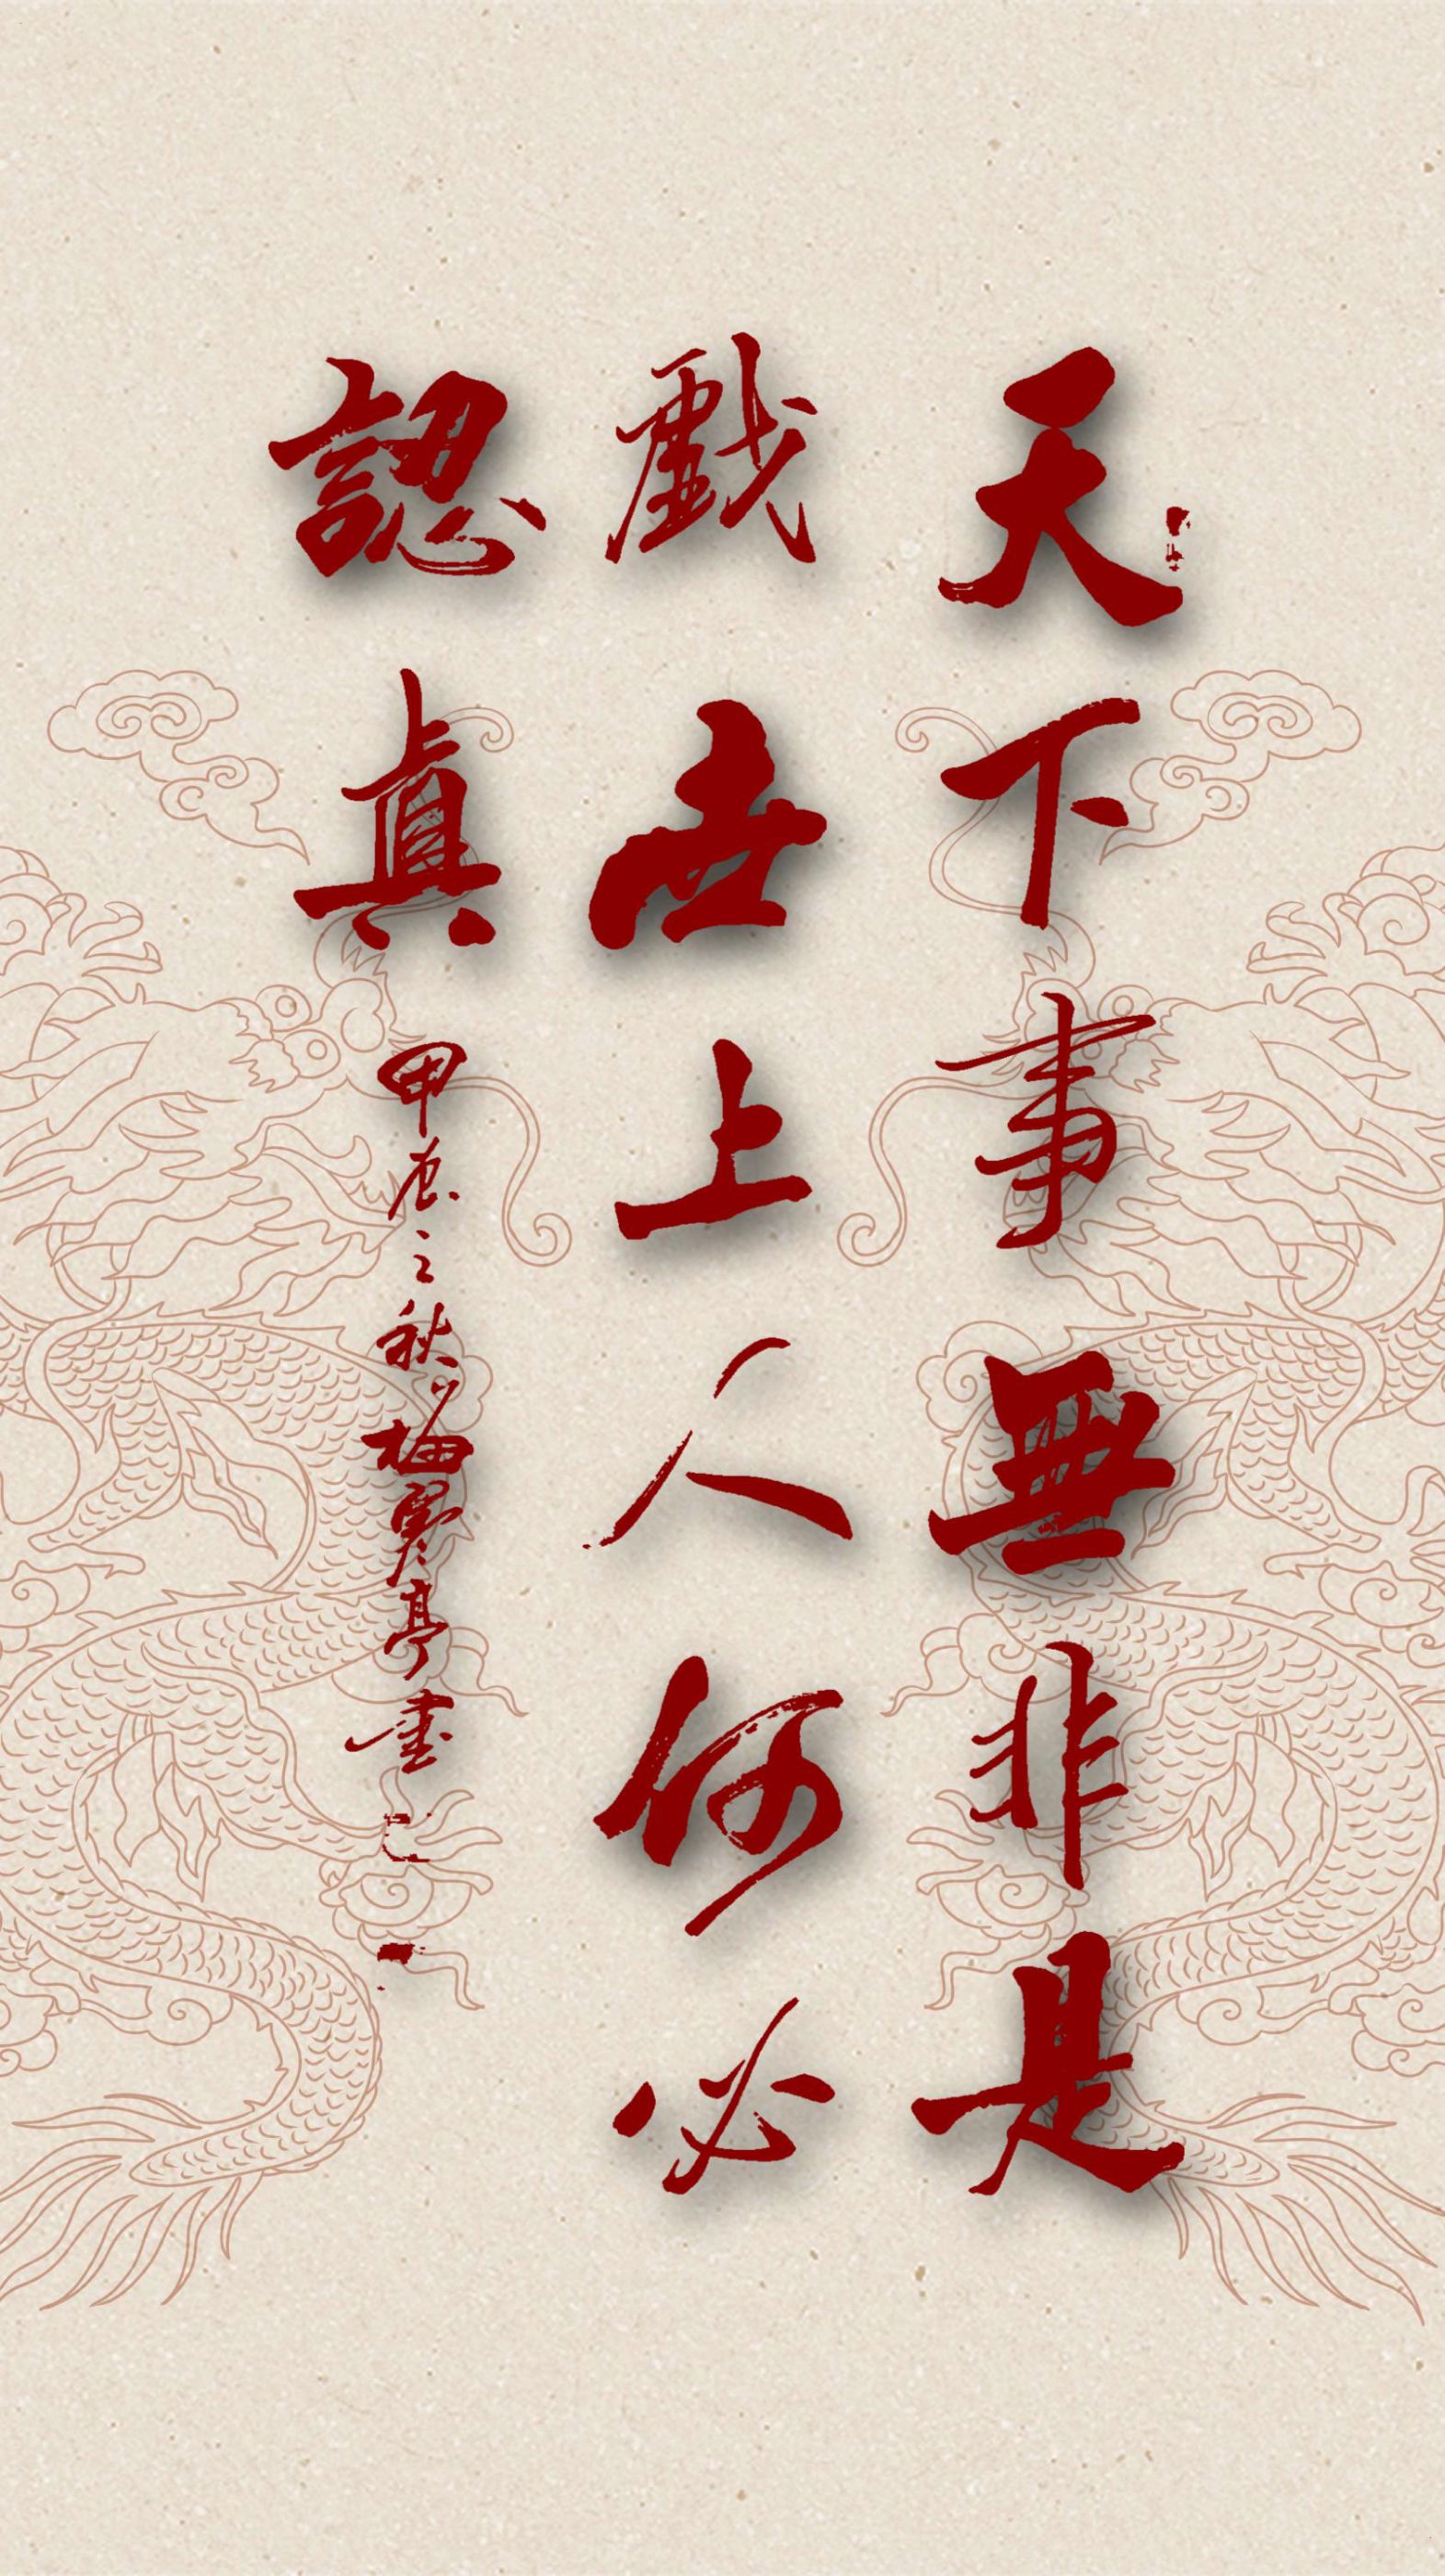 天下事無非是
戲世上人何必
認真
甲辰之秋梅寒亭書